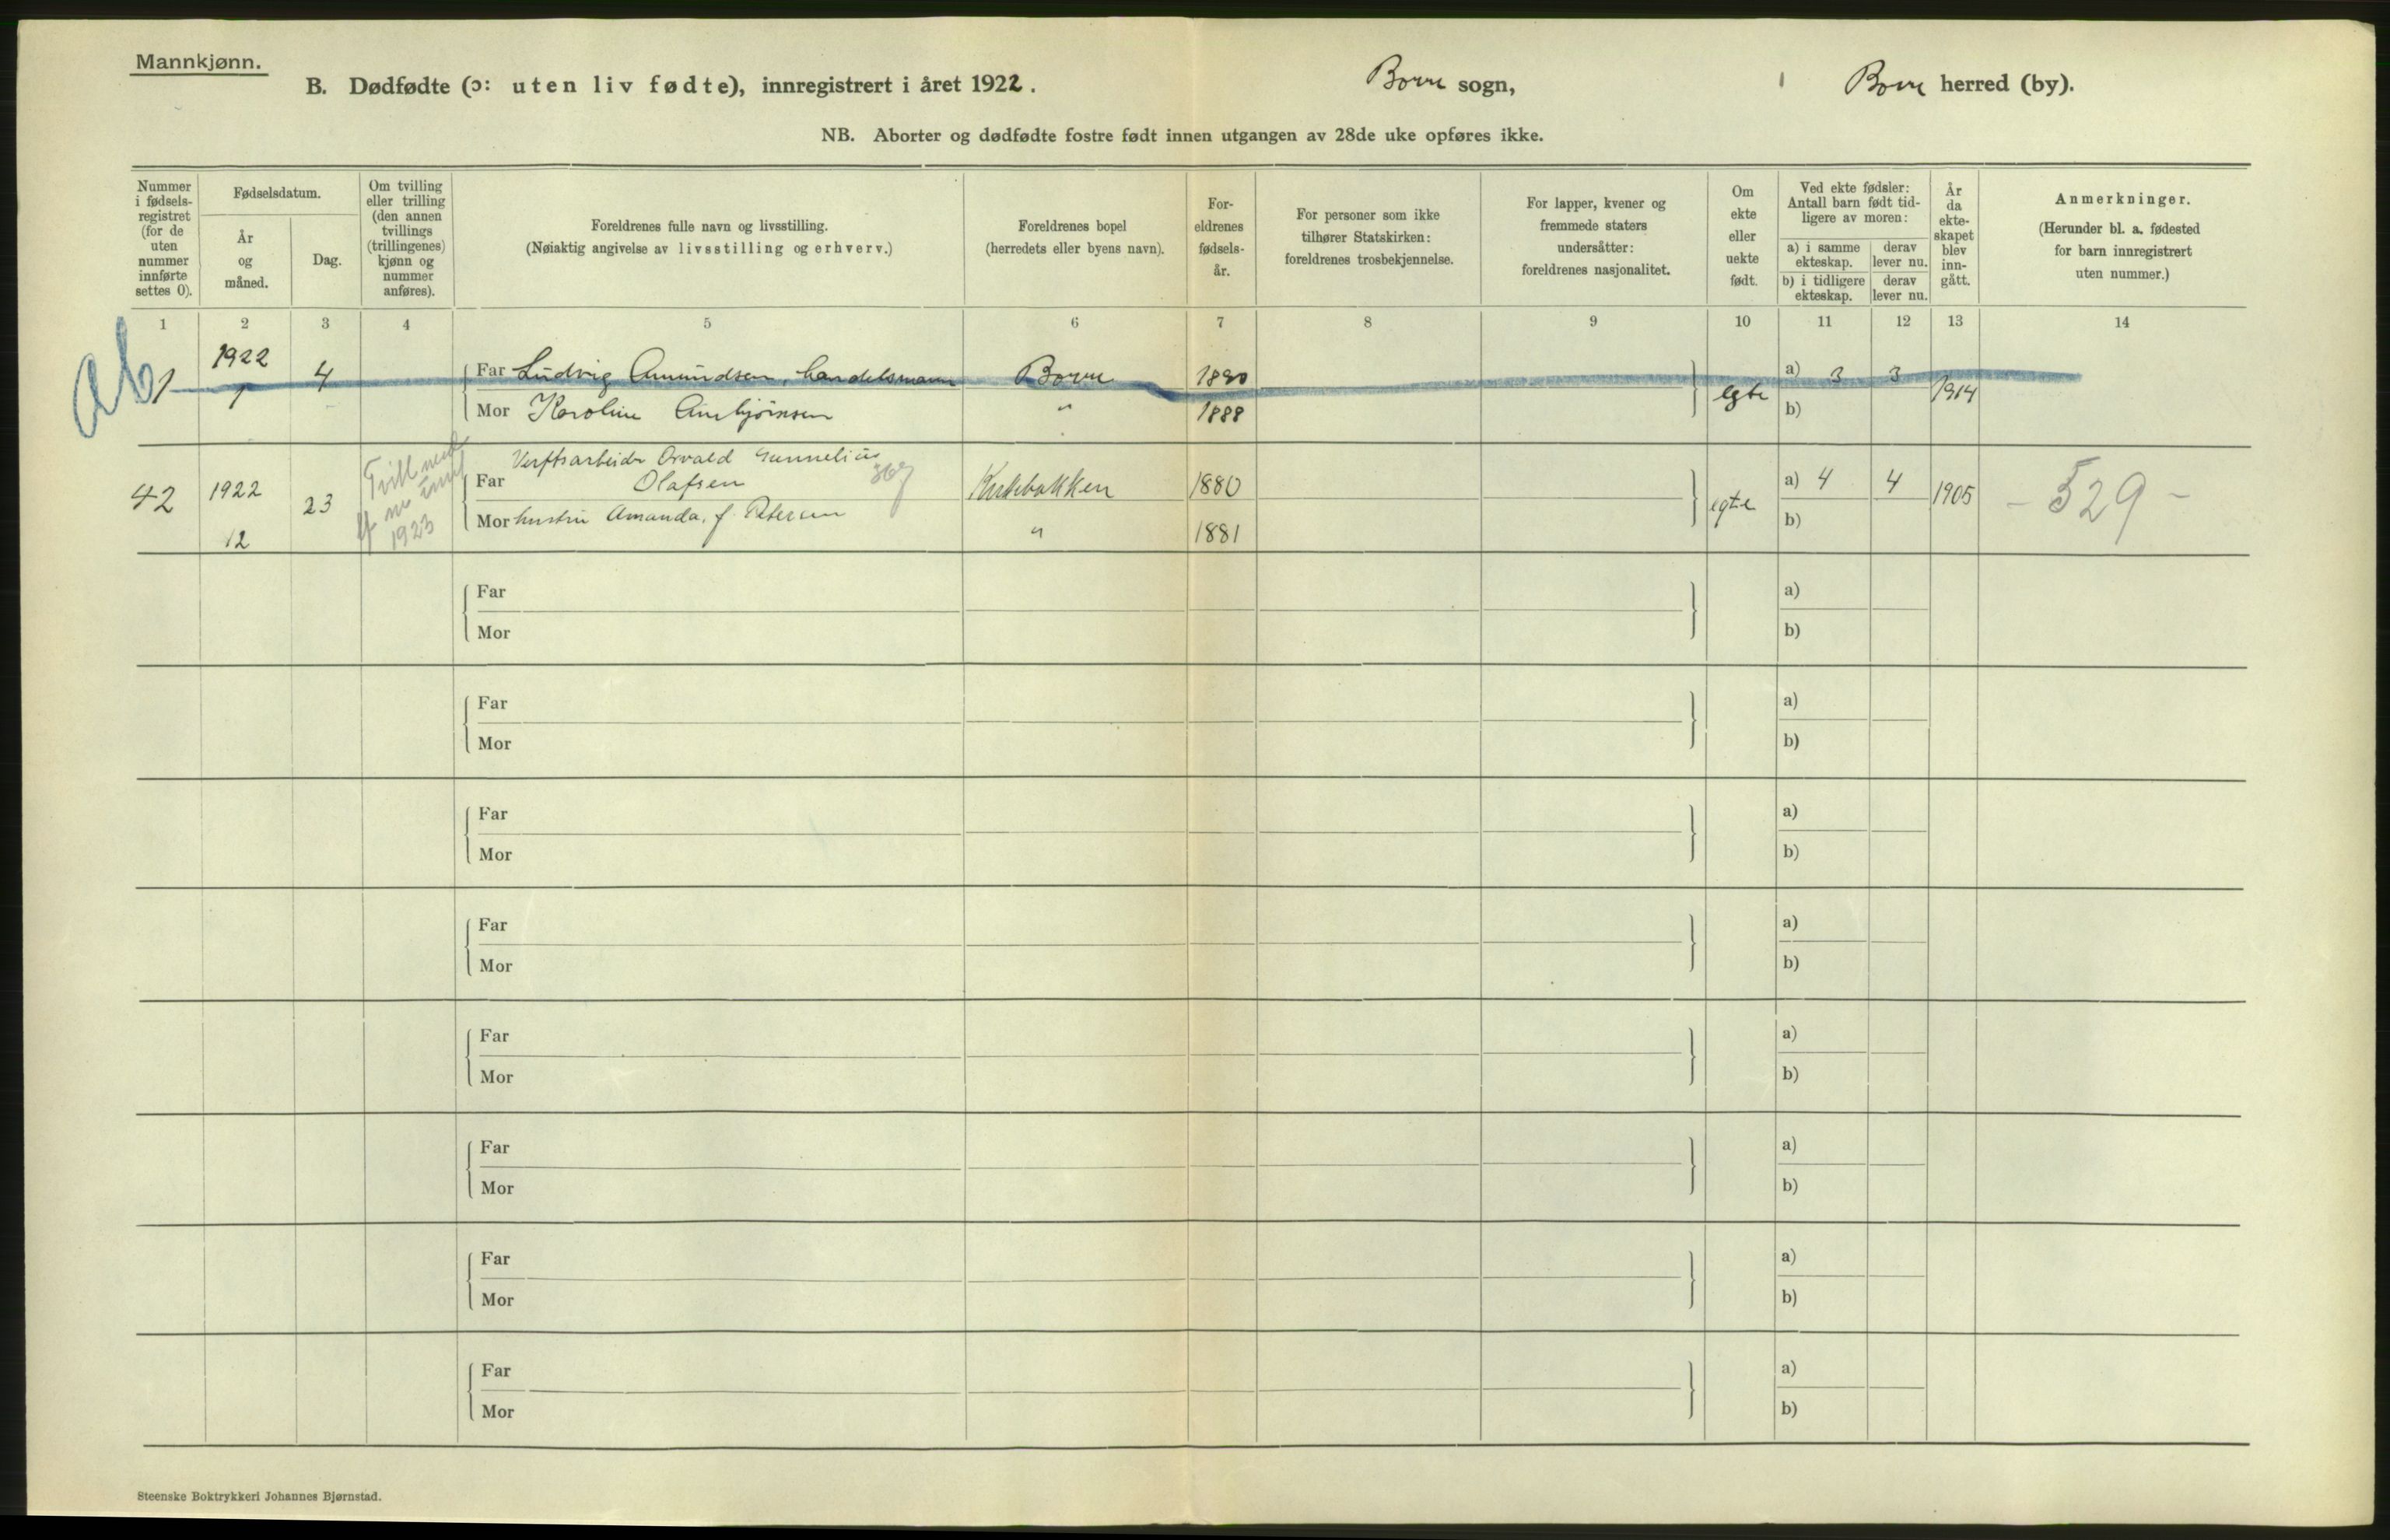 Mannkjønn.
B. Dødfødte (ɔ: uten liv fødte), innregistrert i året 1922.
Borre sogn,
Borre herred (by).
NB. Aborter og dødfødte fostre født innen utgangen av 28de uke opføres ikke.
Nummer
i fødsels-
registret
(for de
uten
nummer
innførte
settes 0).
Fødselsdatum.
År
og
måned.
Dag.
Om tvilling
eller trilling
(den annen
tvillings
(trillingenes)
kjønn og
nummer
anføres).
Foreldrenes fulle navn og livsstilling.
(Nøiaktig angivelse av livsstilling og erhverv.)
Foreldrenes bopel
(herredets eller byens navn).
For-
eldrenes
fødsels-
år.
For personer som ikke
tilhører Statskirken:
foreldrenes trosbekjennelse.
For lapper, kvener og
fremmede staters
undersåtter:
foreldrenes nasjonalitet.
Om
ekte
eller
uekte
født.
Ved ekte fødsler:
Antall barn født tid-
ligere av moren:
a) i samme
ekteskap.
derav
lever nu.
b) i tidligere
ekteskap.
derav
lever nu.
År
da
ekte-
skapet
blev
inn-
gått.
Anmerkninger.
(Herunder bl. a. fødested
for barn innregistrert
uten nummer.)
1 2 3 4 5 6 7 8 9 10 11 12 13 14
ab
1 1922 4 Far Ludvig Amundsen, handelsmann Borre 1880 a) 3 3
1 Mor Karoline " 1888 egte b) 1914
Verftsarbeider Osvald
42 1922 23 Tvill med
1923
Far Olafsen 1880 a) 4 4 1905 - 529 -
12 Mor hustru Amanda, f. Petersen " 1881 egte b)
Far a)
Mor b)
Far a)
Mor b)
Far a)
Mor b)
Far a)
Mor b)
Far a)
Mor b)
Far a)
Mor b)
Far a)
Mor b)
Far a)
Mor b)
Steenske Boktrykkeri Johannes Bjørnstad.